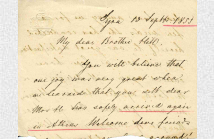 Syra 13 Septbr 1851
My dear Brother Hill.
You will believe that
our joy was very great when
we learned that you, with dear
Mrs H. was safely arrived again
in Athens Welcome dear friends